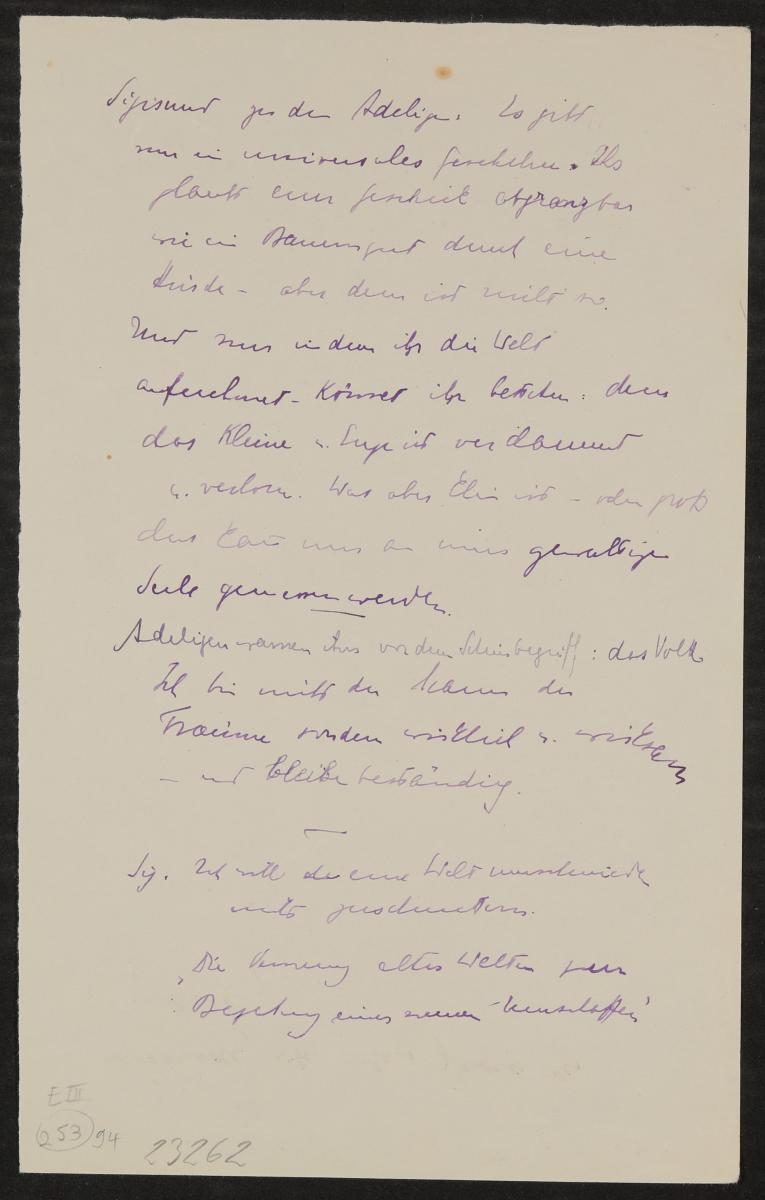 Sigismund zu den Adeligen: Es gibt
nur ein universales Geschehen. Ihr
glaubt euer Geschick abgrenzbar
wie ein Bauerngut durch eine
Hürde – aber dem ist nicht so.
Und nur indem ihr die Welt
aufnehmet – könnet ihr bestehen: denn
das Kleine u. Enge ist verdammt
u. verloren. Was aber ist – oder groß
das kann nur an einer gewaltigen
Seele gemessen werden.
Adeligen warnen ihn vor dem Scheinbegriff: das Volk
Ich bin nicht der Mann der
Träume sondern wirklich u. wirksam
– und bleibe beständig.
Sig. Ich will die eine Welt umschmieden
nicht zuschmettern.
"Die alter Welten zur
eines neuen Menschen"
E III
253 94
23262